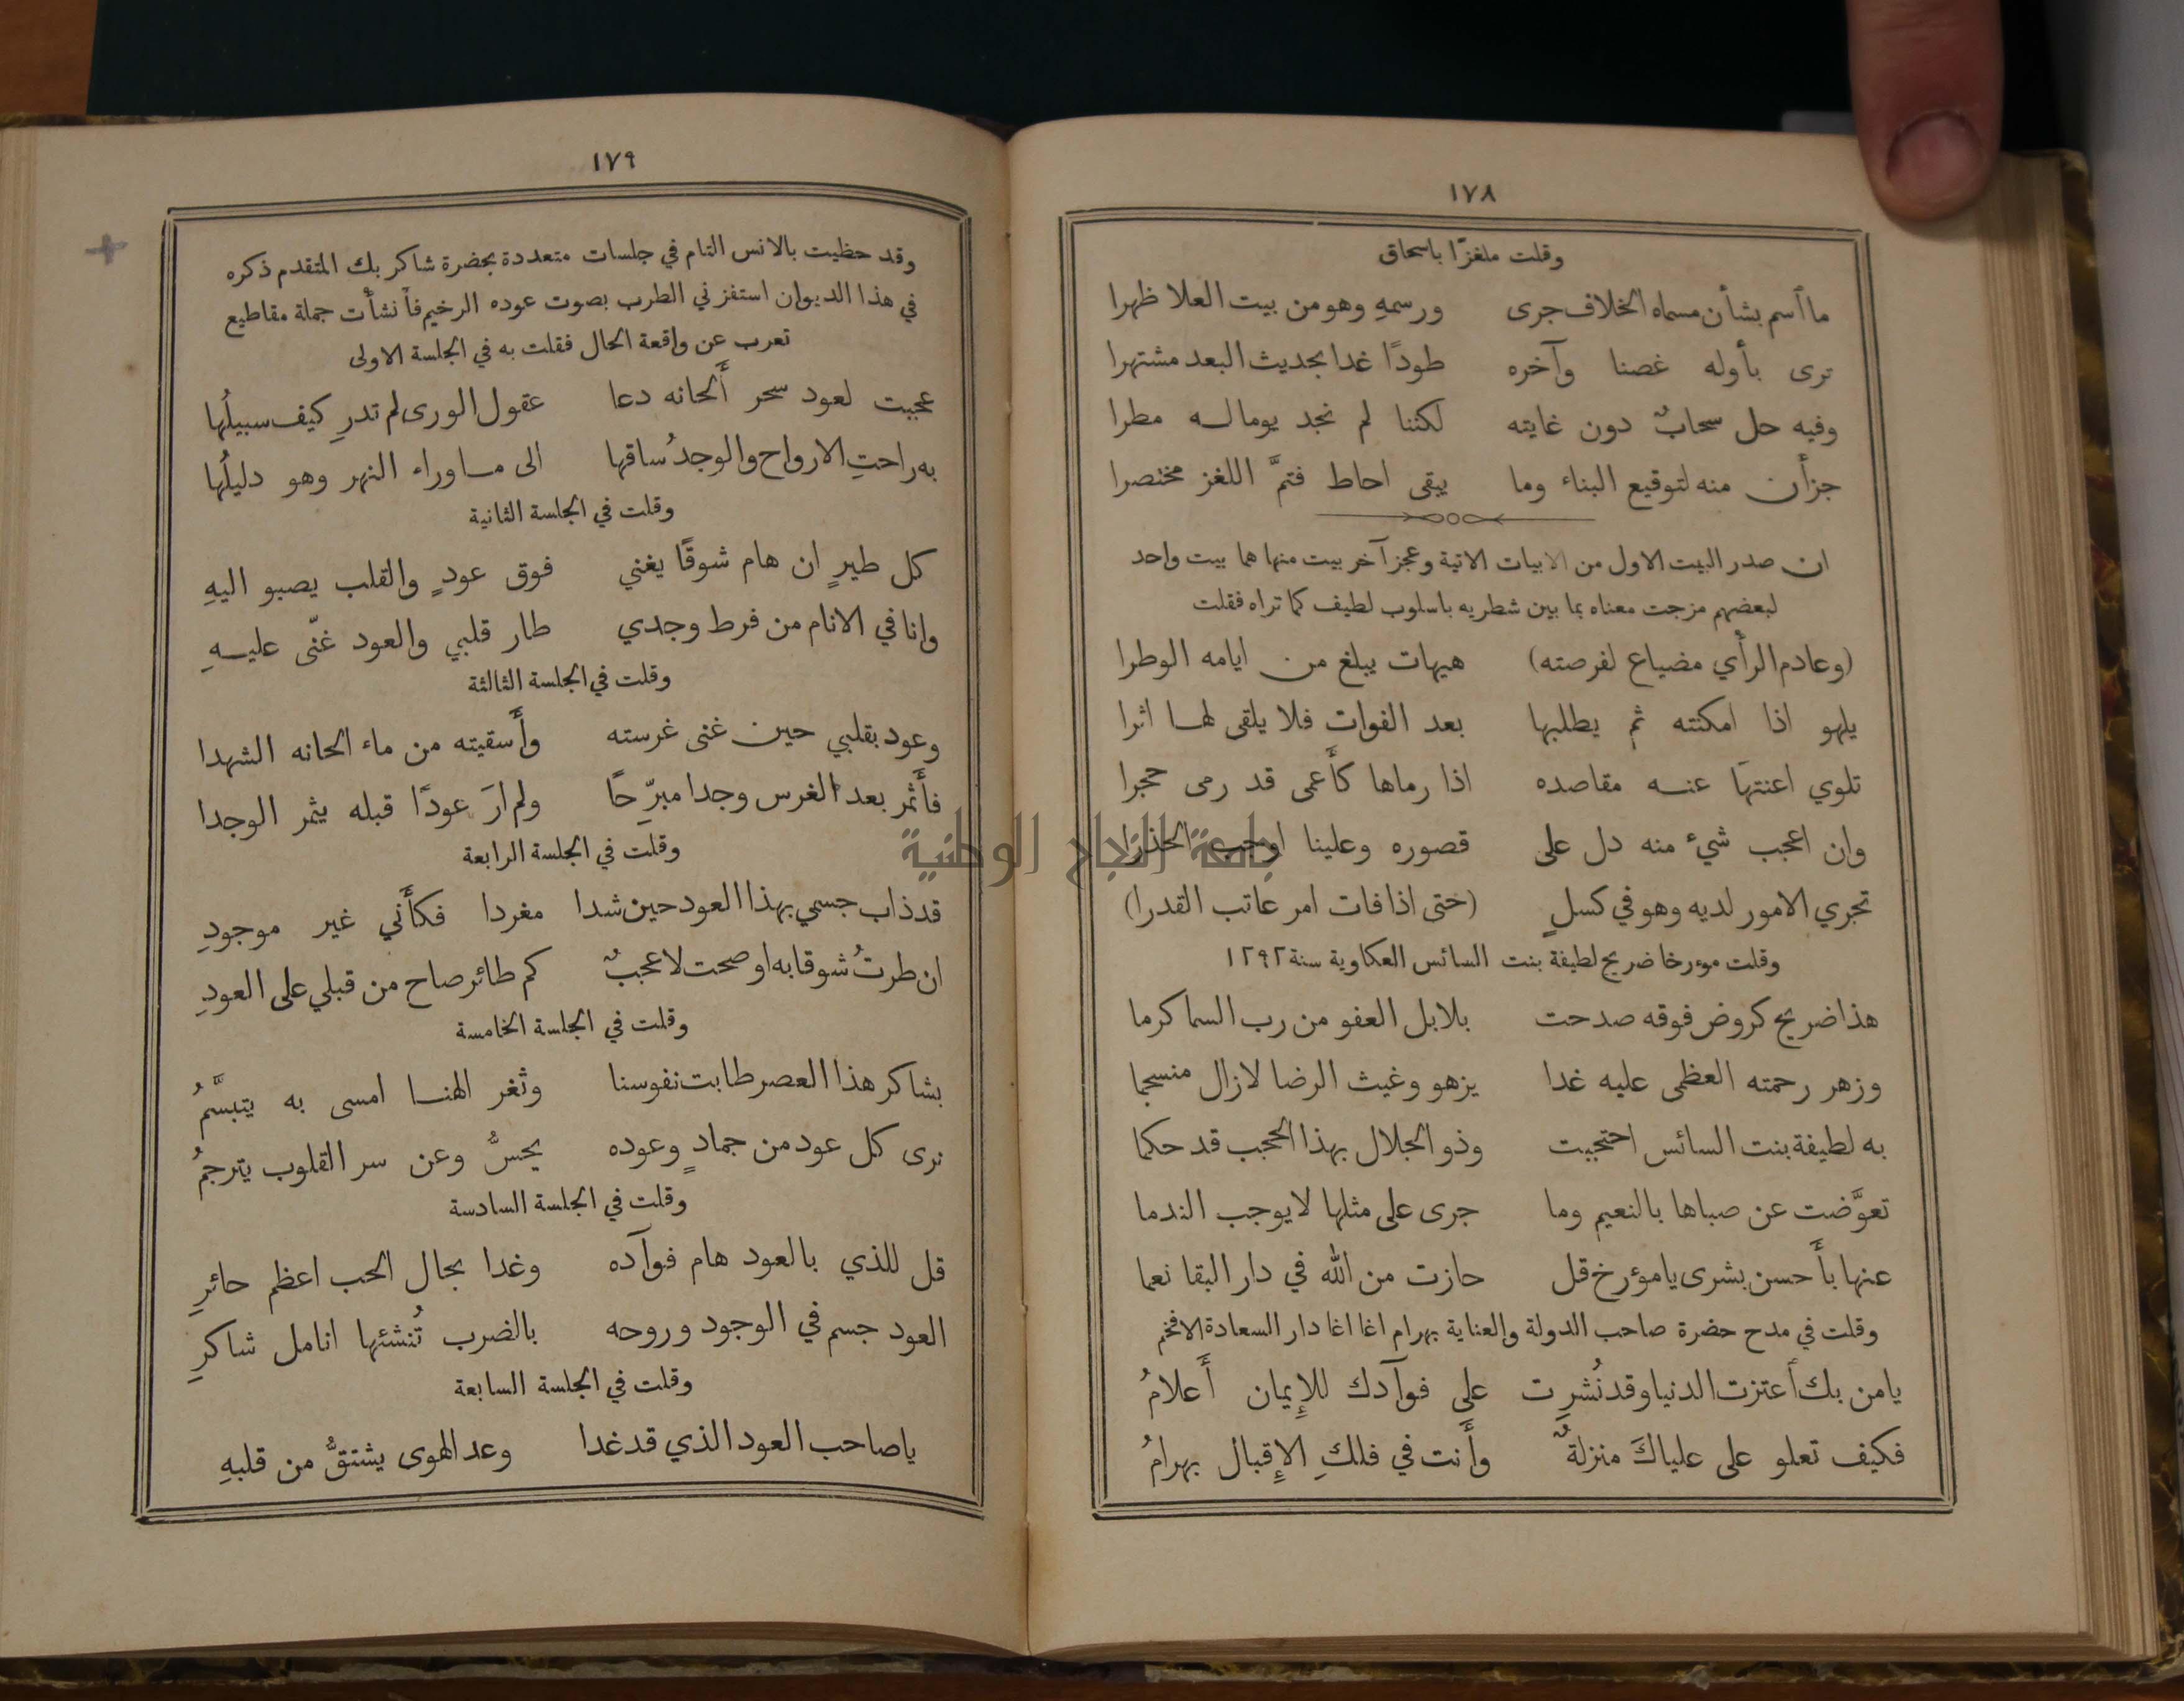 ١٧٨
وقلت ملغزًا باسحاق
ما أسم بشأن مسماه الخلاف جرى ورسمهِ وهو من بيت العلا ظهرا
ترى بأوله غصنا وآخره طودًا غدا بحديث البعد مشتهرا
وفيه حل سحابٌ دون غايته لكننا لم نجد يوما له مطرا
جزأن منه لتوقيع البناء وما يبقى احاط فتمَّ اللغز مختصرا
ان صدر البيت الاول من الابيات الاتية وعجز آخر بيت منها هما بيت واحد
لبعضهم مزجت معناه بما بين شطريه باسلوب لطيف كما تراه فقلت
(وعادم الرأي مضياع لفرصته) هيهات يبلغ من ايامه الوطرا
يلهو اذا امكنته ثم يطلبها بعد الفوات فلا يلقى لها اثرا
تلوي اعنتهَا عنه مقاصده اذا رماها كأَعمى قد رمى حجرا
وان اعجب شيء منه دل على قصوره وعلينا اوجب الحذرا
تجري الامور لديه وهو في كسلٍ (حتى اذا فات امر عاتب القدرا)
وقلت مؤرخا ضريح لطيفة بنت السائس العكاوية سنة ١٢٩٢
هذا ضريح كروض فوقه صدحت بلابل العفو من رب السما كرما
وزهر رحمته العظمى عليه غدا يزهو وغيث الرضا لازال منسجما
به لطيفة بنت السائس احتجبت وذو الجلال بهذا الحجب قد حكما
تعوَّضت عن صباها بالنعيم وما جرى على مثلها لا يوجب الندما
عنها بأَحسن بشرى يا مؤرخ قل حازت من الله في دار البقا نعما
وقلت في مدح حضرة صاحب الدولة والعناية بهرام اغا اغا دار السعادة الافخم
يا من بك أعتزت الدنيا وقد نُشرِت على فوآدك للإِيمان أَعلامُ
فكيف تعلو على علياكَ منزلةٌ وأَنت في فلكِ الإِقبال بهرامُ
١٧٩
وقد حظيت بالانس التام في جلسات متعددة بحضرة شاكر بك المتقدم ذكره
في هذا الديوان استفزني الطرب بصوت عوده الرخيم فأنشأت جملة مقاطيع
تعرب عن واقعة الحال فقلت به في الجلسة الاولى
عجبت لعود سحر أَلحانه دعا عقول الورى لم تدرِ كيف سبيلُها
به راحتِ الارواح والوجدُ ساقها الى ما وراء النهر وهو دليلُها
وقلت في الجلسة الثانية
كل طيرٍ ان هام شوقًا يغني فوق عودٍ والقلب يصبو اليهِ
وانا في الانام من فرط وجدي طار قلبي والعود غنّى عليهِ
وقلت في الجلسة الثالثة
وعود بقلبي حين غنى غرسته وأَسقيته من ماء الحانه الشهدا
فأَثمر بعد الغرس وجدا مبرّحًا ولم ارَ عودًا قبله يثمر الوجدا
وقلت في الجلسة الرابعة
قد ذاب جسمي بهذا العود حين شدا مغردا فكأَني غير موجودِ
ان طرتُ شوقا به او صحت لا عجبٌ كم طائر صاح من قبلي على العودِ
وقلت في الجلسة الخامسة
بشاكر هذا العصر طابت نفوسنا وثغر الهنا امسى به يتبسَّمُ
نرى كل عود من جمادٍ وعوده يحسُّ وعن سر القلوب يترجمُ
وقلت في الجلسة السادسة
قل للذي بالعود هام فوآده وغدا بحال الحب اعظم حائرِ
العود جسم في الوجود وروحه بالضرب تُنشئها انامل شاكرِ
وقلت في الجلسة السابعة
يا صاحب العود الذي قد غدا وعد الهوى يشتقُّ من قلبهِ
جامعة النجاح الوطنية